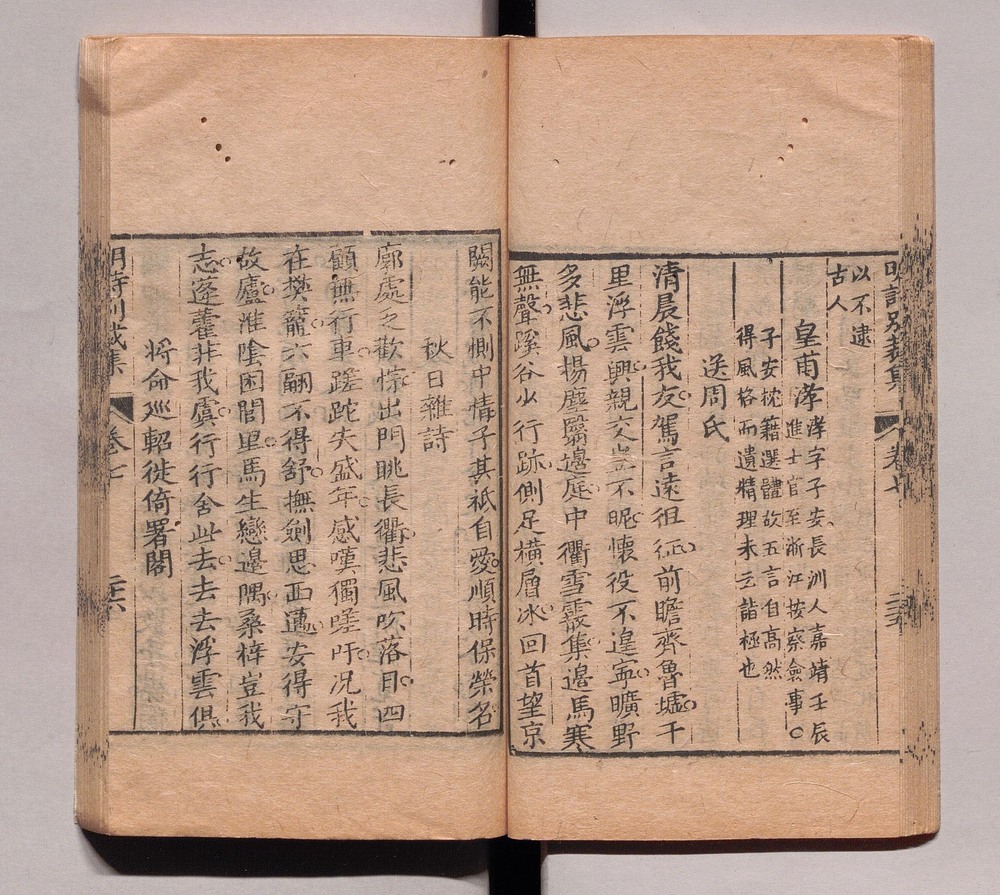 明詩別裁集 卷七 二十五
以不逮
古人
皇甫涍 涍字子安長洲人嘉靖壬辰
進士官至浙江按察僉事○
子安枕藉選體故五言自高然
得風格而遺精理未云詣極也
送周氏
清晨餞我友駕言遠徂征前瞻齊魯墟千
里浮雲興親交豈不昵懷役不遑寧曠野
多悲風揚塵翳邊庭中衢雪霰集邊馬寒
無聲蹊谷少行跡側足橫層冰回首望京
闕能不惻中情子其祇自愛順時保榮名
秋日雜詩
廓處乏歡悰出門眺長衢悲風吹落日四
顧無行車蹉跎失盛年感嘆獨嗟吁况我
在樊籠六翮不得舒撫劍思西邁安得守
故廬淮陰困閭里馬生戀邊隅桑梓豈我
志蓬藋非我虞行行舍此去去去浮雲俱
將命巡軺徙倚署閣
明詩別裁集 卷七 二十六